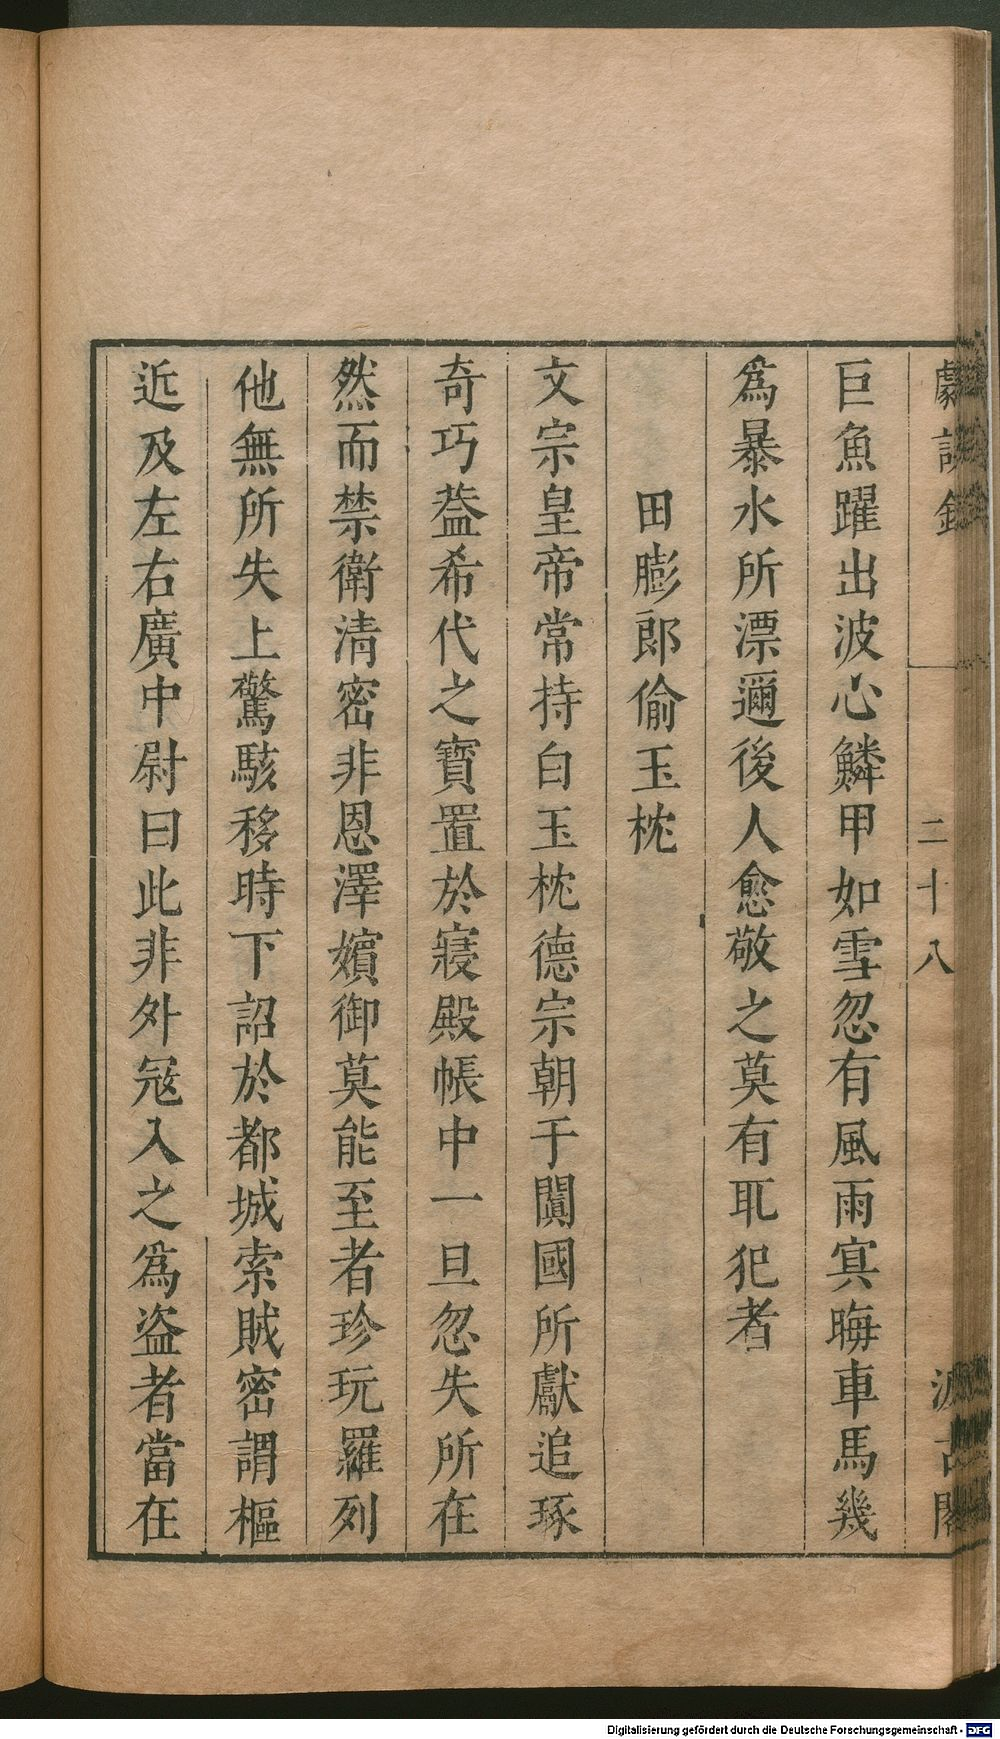 劇談錄
二十八
汲古閣
巨魚躍出波心鱗甲如雪忽有風雨㝠晦車馬幾
爲暴水所漂邇後人愈敬之莫有耴犯者
田膨郎偷玉枕
文宗皇帝常持白玉枕德宗朝于闐國所獻追琢
奇巧葢希代之寶置於寢殿帳中一旦忽失所在
然而禁衛清密非恩澤嬪御莫能至者珍玩羅列
他無所失上驚駭移時下詔於都城索賊密謂樞
近及左右廣中尉曰此非外寇入之爲盜者當在
Digitalisierung gefördert durch die Deutsche Forschungsgemeinschaft - DFG